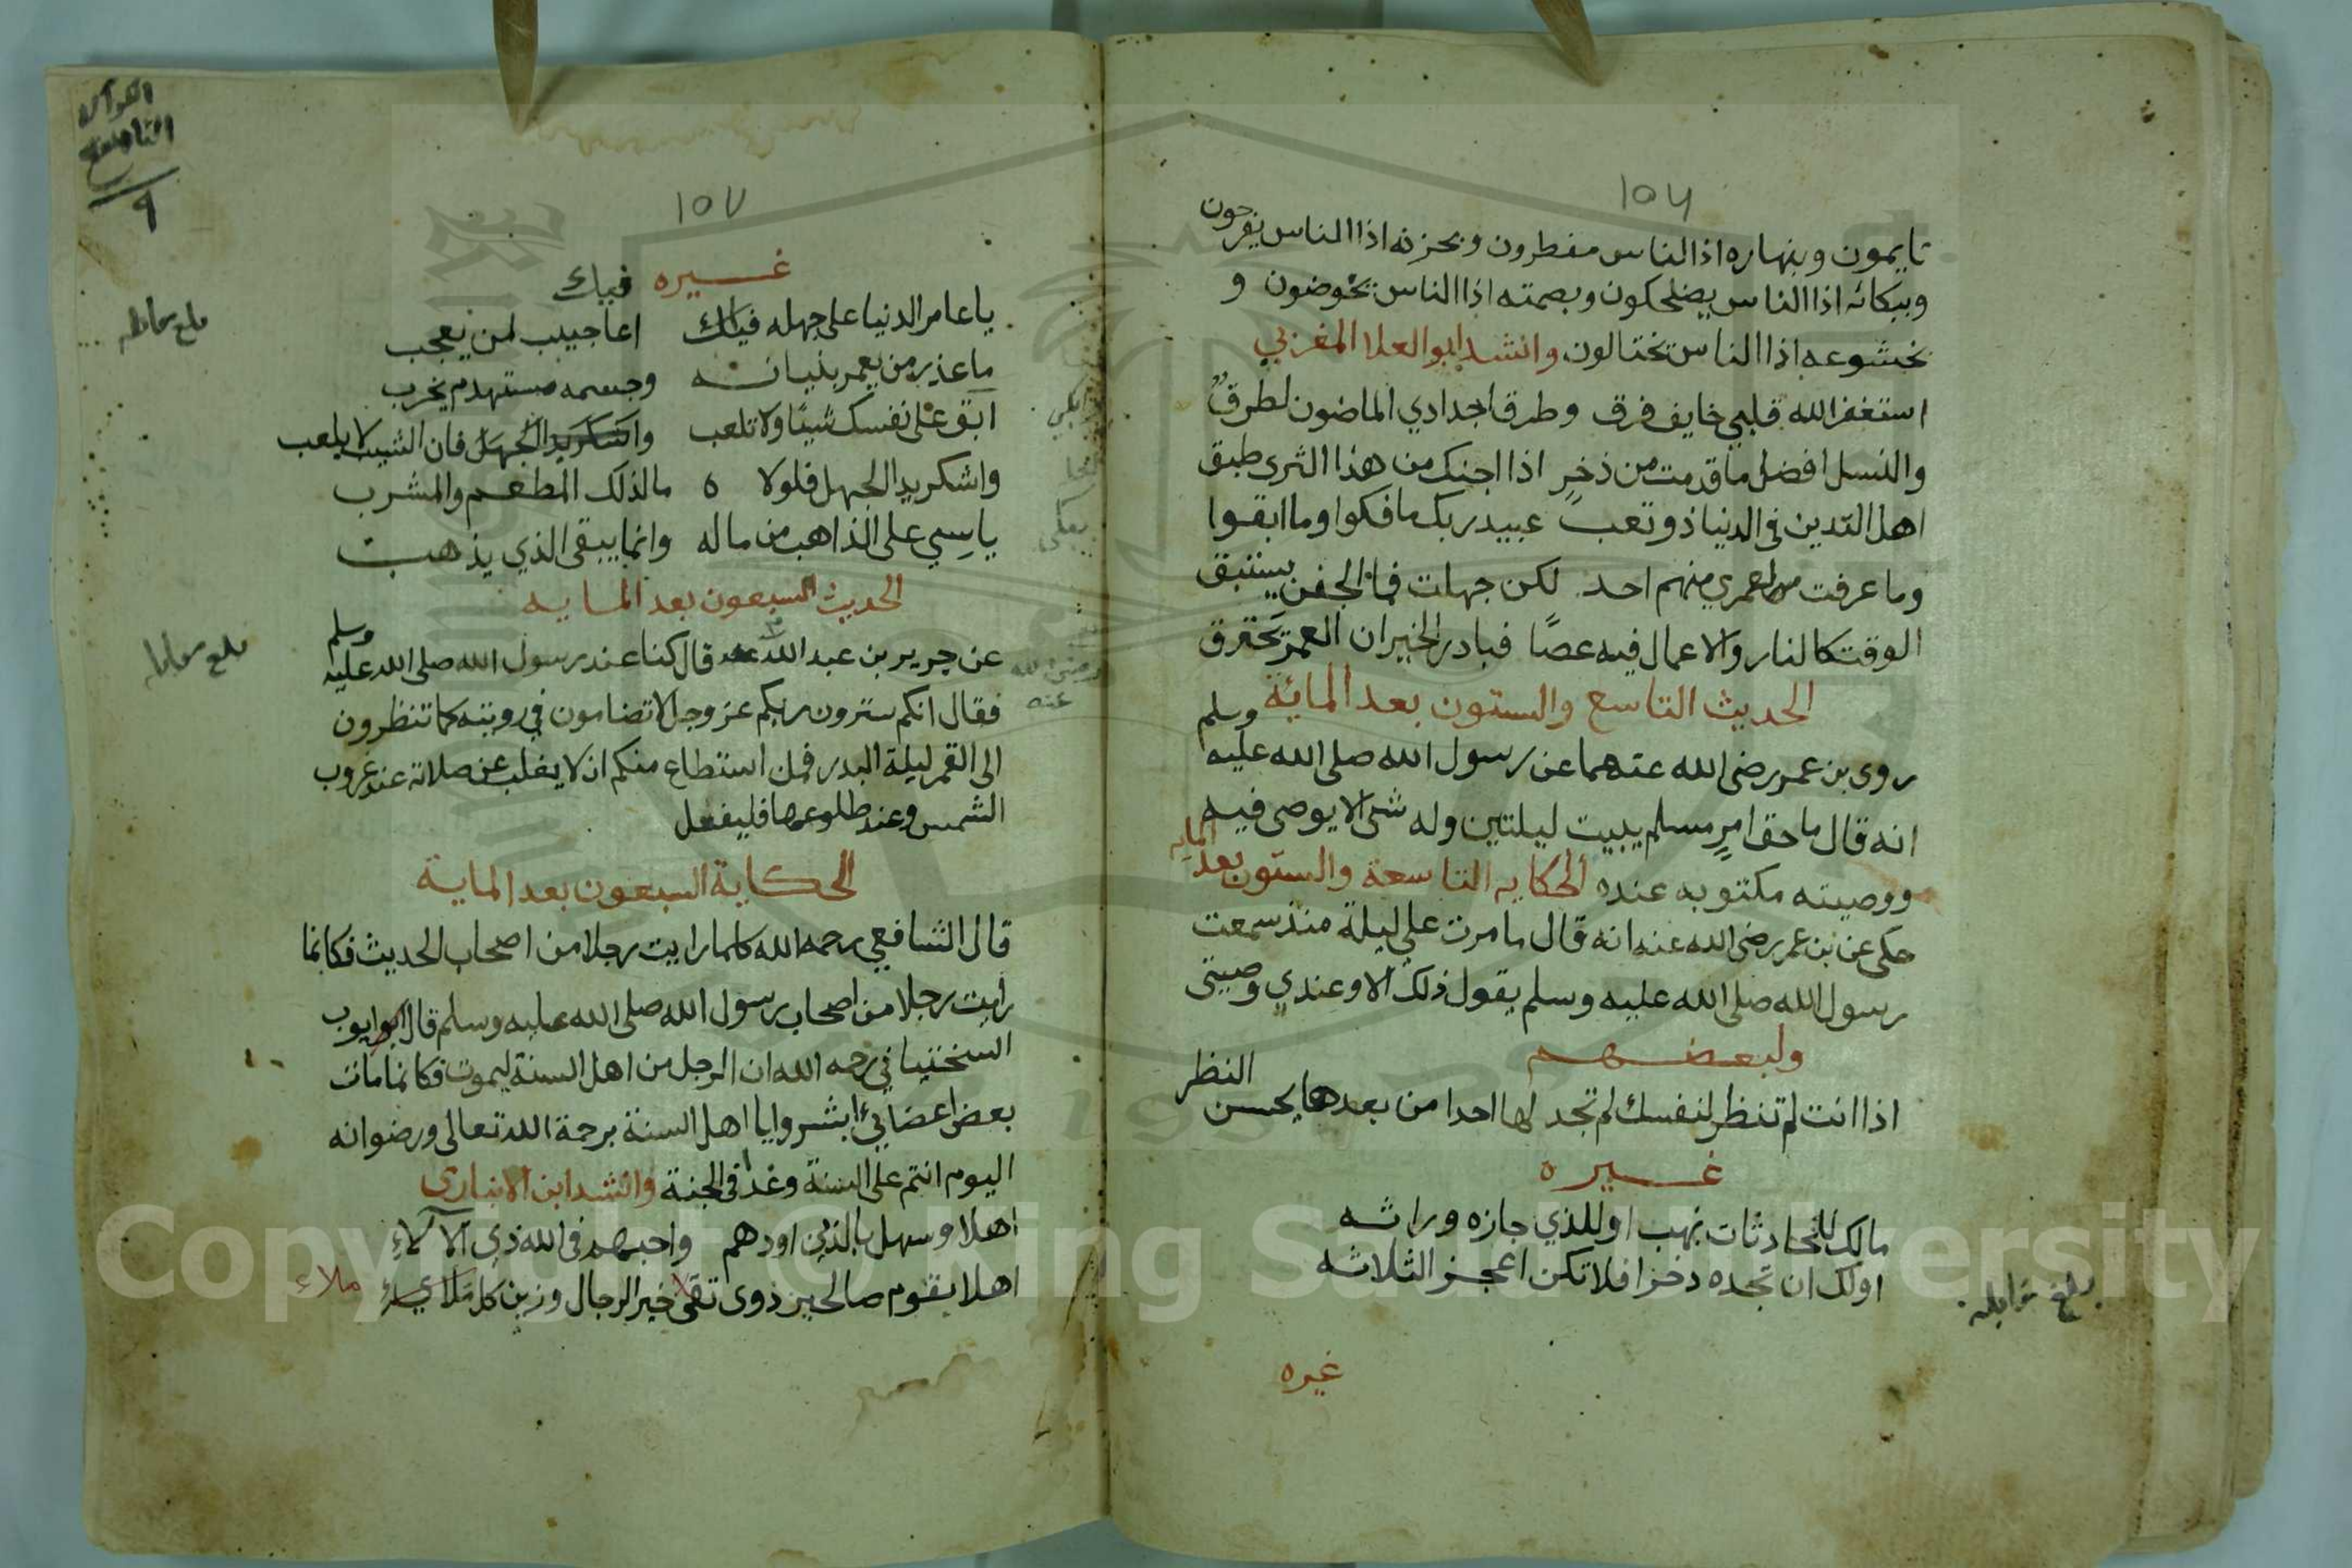 ١٥٦
نايمون وبنهاره اذا الناس مفطرون وبحزنه اذا الناس يفرحون
وببكائه اذا الناس يضحكون وبصمته اذا الناس يخوضون و
بخشوعه اذا الناس يختالون وانشد ابو العلا المغربي
استغفر الله قلبي خايف فرق وطرق اجدادي الماضون لطرق
والنسل افضل ما قدمت من ذخر اذا اجنك من هذا الثرى طبق
اهل التدين في الدنيا ذو وتعب عبيد ربك ما فكوا وما ابقوا
وما عرفت لعمري منهم احد لكن جهلت فما الجفن يستبق
الوقت كالنار والاعمال فيه عصًا فبادر الخير ان العمر يحترق
الحديث التاسع والستون بعد المائة
روى بن عمر رضى الله عنهما عن رسول الله صلى الله عليه وسلم
انه قال ما حق امرٍ مسلم يبيت ليلتين وله شى الا يوصى فيه
ووصيته مكتوبه عنده الحكايه التاسعة والستون بعد المايه
حكى عن بن عمر رضى الله عنه انه قال ما مرت علي ليلة منذ سمعت
رسول الله صلى الله عليه وسلم يقول ذلك الا وعندي وصيتى
ولبعضهم
اذا انت لم تنظر لنفسك لم تجد لها احدا من بعدها يحسن النظر
غيره
مالك للحادثات نهب او للذي جازه وراثه
اولك ان تجده دخرا فلا تكن اعجز الثلاثه
بلغ مقابلة
غيره
١٥٧
٩
غيره
يا عامر الدنيا على جهله فيك اعاجيب لمن يعجب
ما عذر من يعمر بنيانه وجسمه مستهدم يخرب
ابق على نفسك شيئا ولا تلعب فان الشيب لا يلعب
واشكر يد الجهل فلولا ه ما لذلك المطعم والمشرب
ياسي على الذاهب من ماله وانما يبقى الذي يذهب
الحديث السبعون بعد المايه
عن جرير بن عبد الله قال كنا عند رسول الله صلى الله عليه وسلم
رضى الله عنه
فقال انكم سترون ربكم عز وجل لا تضامون في رويته كما تنظرون
الى القمر ليلة البدر فمن استطاع منكم ان لا يغلب عن صلاته عند غروب
الشمس وعند طلوعها فليفعل
الحكاية السبعون بعد الماية
قال الشافعي رحمه الله كلما رايت رجلا من اصحاب الحديث فكانما
رايت رجلا من اصحاب رسول الله صلى الله عليه وسلم قال ايوب
السختياني رحمه الله ان الرجل من اهل السنة ليموت فكانما مات
بعض اعضائي ابشروا يا اهل السنة برحمة الله تعالى ورضوانه
اليوم انتم على السنة وغدا فى الجنة وانشد ابن الانبارى
اهلا وسهلا بالذين اودهم واحبهم فى الله ذي الآلاء
اهلا بقوم صالحين ذوى تقى خير الرجال وزين كل ملاء
Copyright © King Saud University